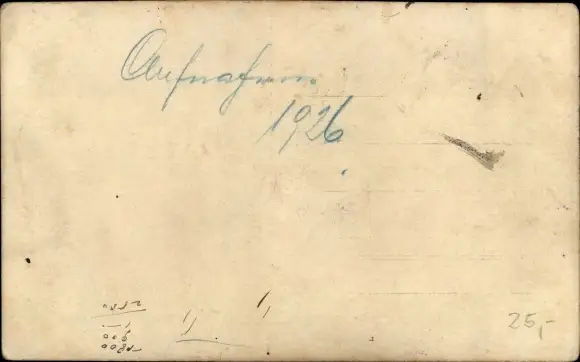 Aufnahme
1926.
25,-